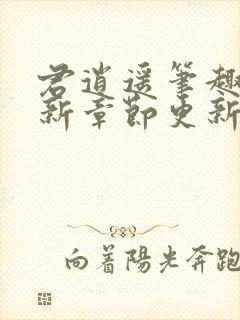 君逍遥笔趣
新章節更新
向着陽光奔跑